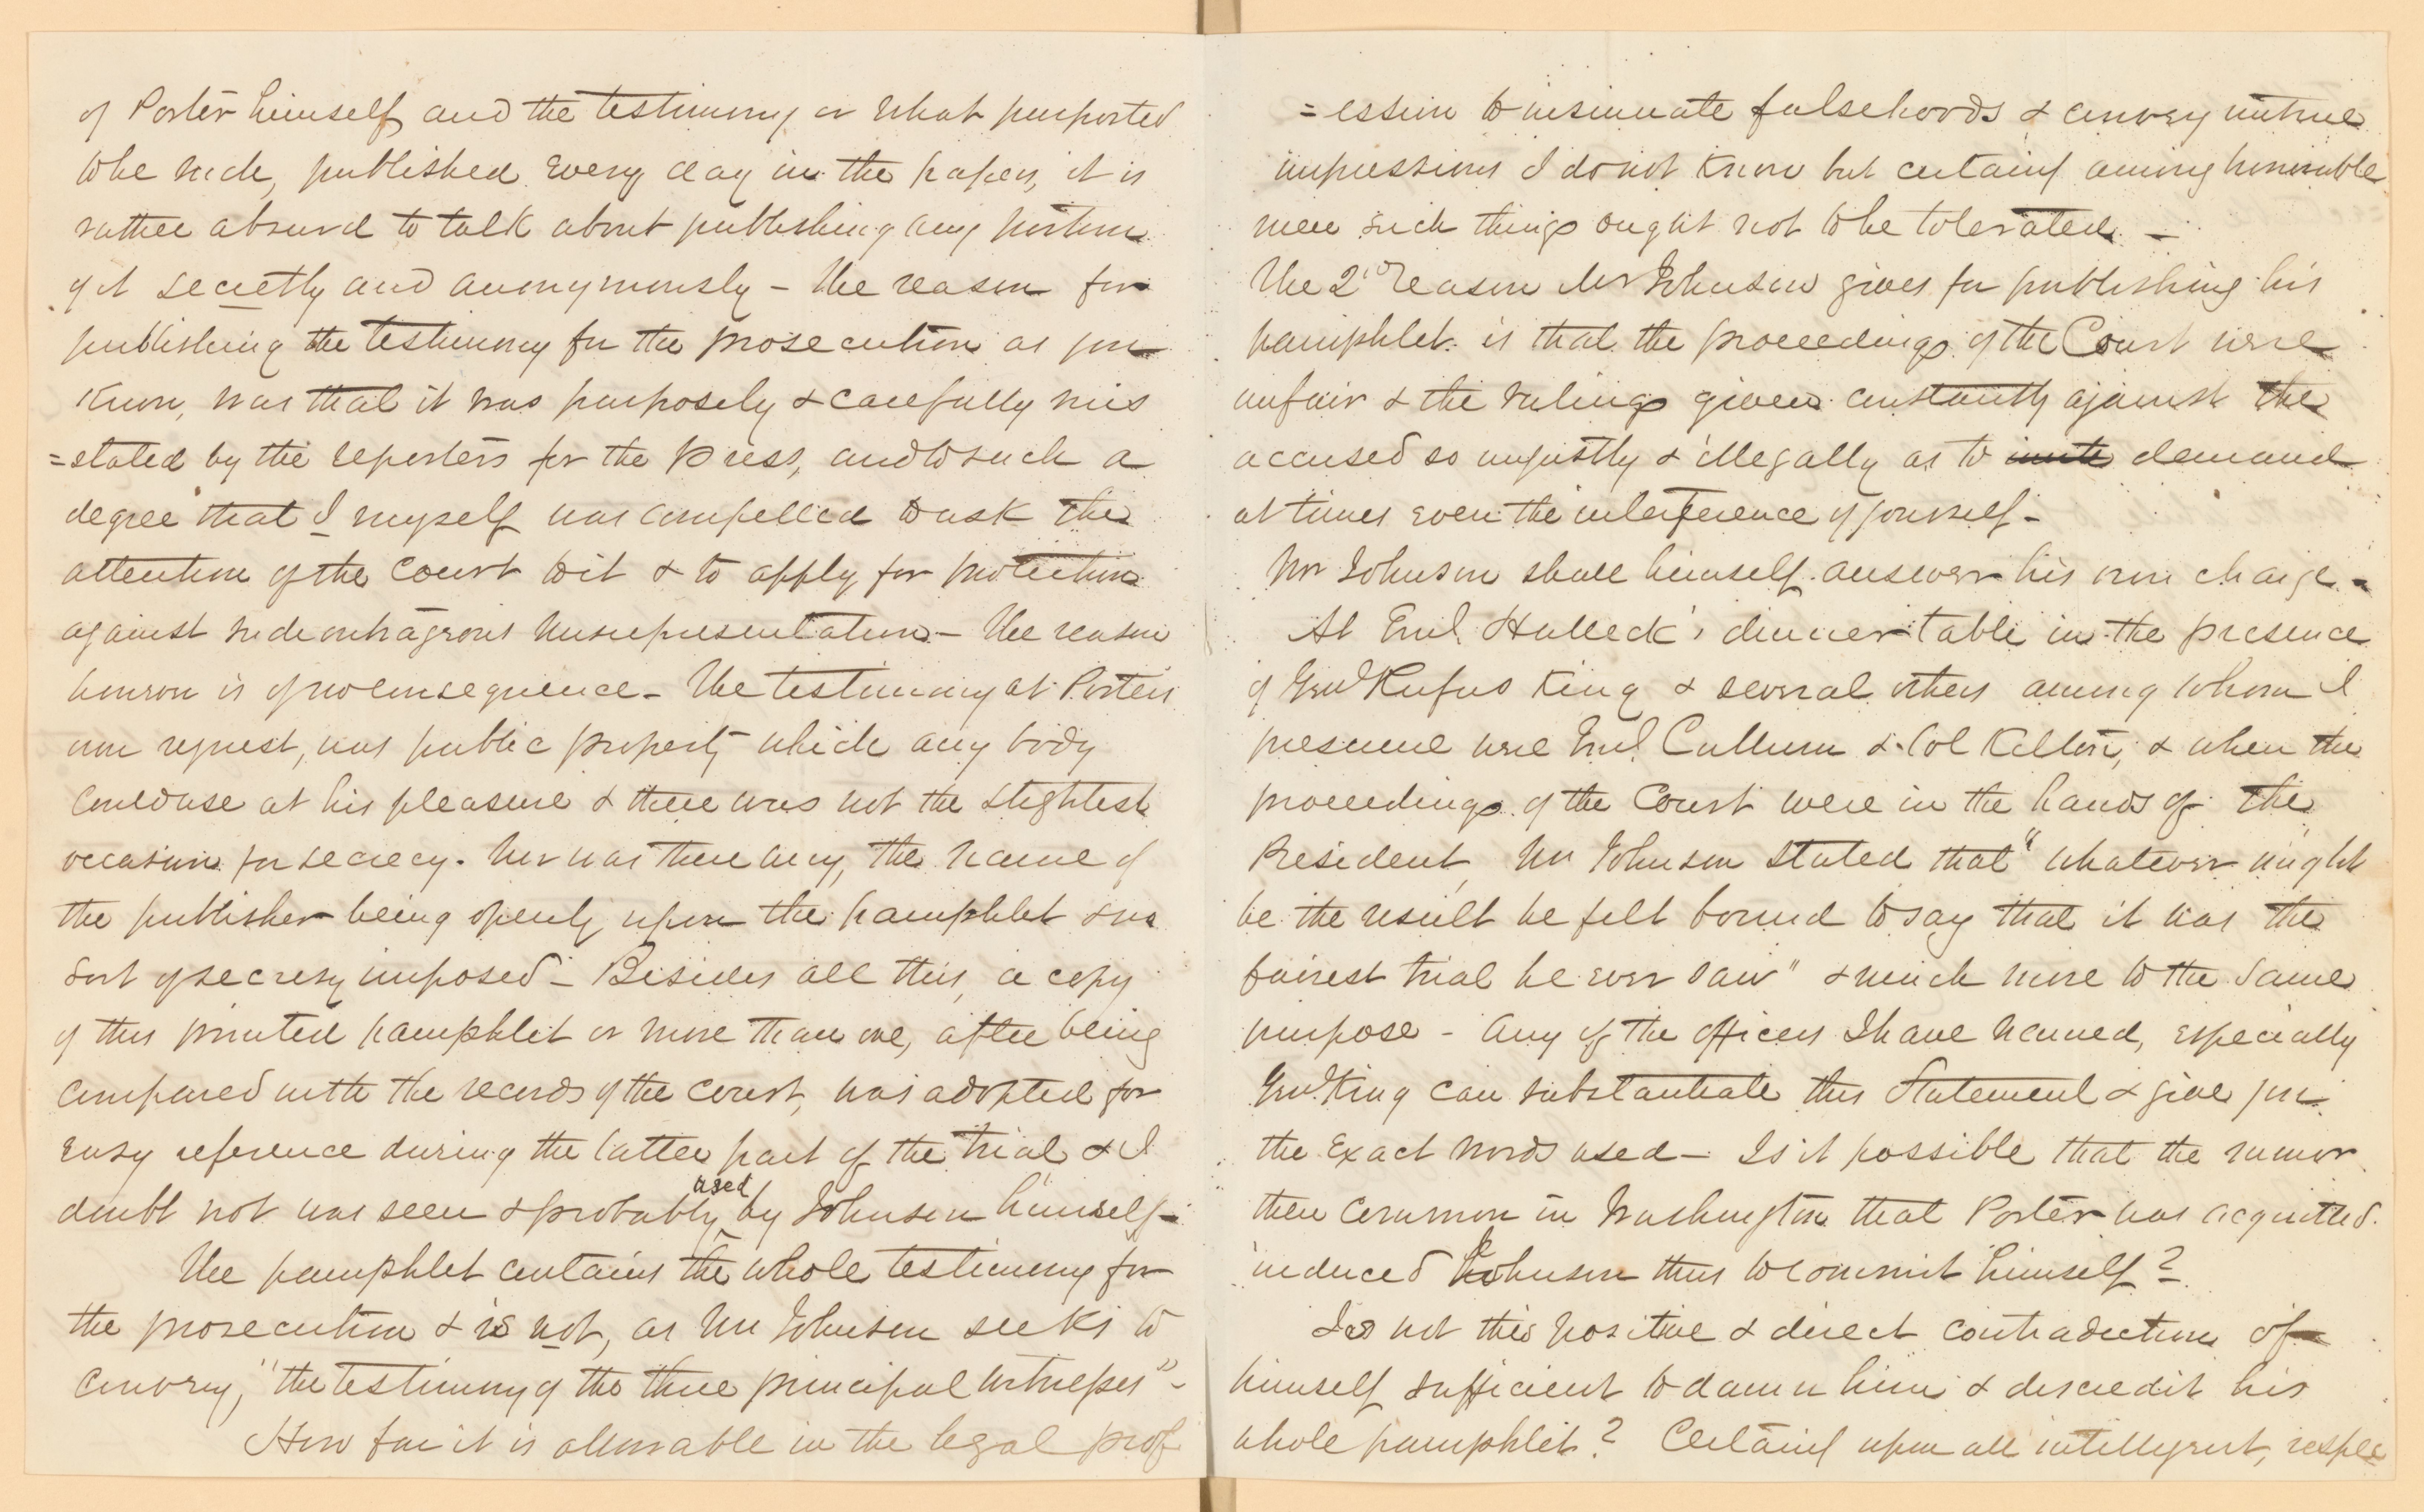 of Porter himself and the testimony or what purported
to be such, published every day in the papers, it is
rather absurd to talk about publishing any portion
of it secretly and anonymously - The reason for
publishing the testimony for the prosecution as you
know, was that it was purposely & carefully mis
=stated by the reporters for the press, and to such a
degree that I myself was compelled to ask the
attention of the Court to it & to apply for protection
against such outrageous misrepresentation - The reason
however is of no consequence - The testimony at Porters
own request, was public property which any body
could use at his pleasure & there was not the slightest
occasion for secrecy. Nor was there any, the name of
the publisher being openly upon the pamphlet & no
sort of secresy imposed - Besides all this, a copy
of this printed pamphlet or more than one, after being
compared with the records of the court, was adopted for
easy reference during the latter part of the trial & I
doubt not was seen & probably used by Johnson himself -
The pamphlet contains the whole testimony for
the prosecution & is not, as Mr Johnson seeks to
convey, "the testimony of the three principal witnesses" -
How far it is allowable in the legal prof
=ession to insinuate falsehoods & convey untrue
impressions I do not know but certainly among honorable
men such things ought not to be tolerated. -
The 2nd reason Mr Johnson gives for publishing his
pamphlet is that the proceedings of the Court were
unfair & the rulings given constantly against the
accused so unjustly & illegally as to invite demand
at times even the interference of yourself -
Mr Johnson shall himself answer his own charge. -
At Genl. Halleck's dinner table in the presence
of Genl Rufus King & several others among whom I
presume were Genl. Cullum & Col Kelton, & when the
proceedings of the Court were in the hands of the
President, Mr Johnson stated that "whatever might
be the result he felt bound to say that it was the
fairest trial he ever saw" & much more to the same
purpose - Any of the officers I have named, especially
Genl. King can substantiate this statement & give you
the exact words used - Is it possible that the rumor
then common in Washington that Porter was acquitted.
induced Johnson thus to commit himself?
Is not this positive & direct contradiction of
himself sufficient to damn him & discredit his
whole pamphlet? Certainly upon all intelligent, respec